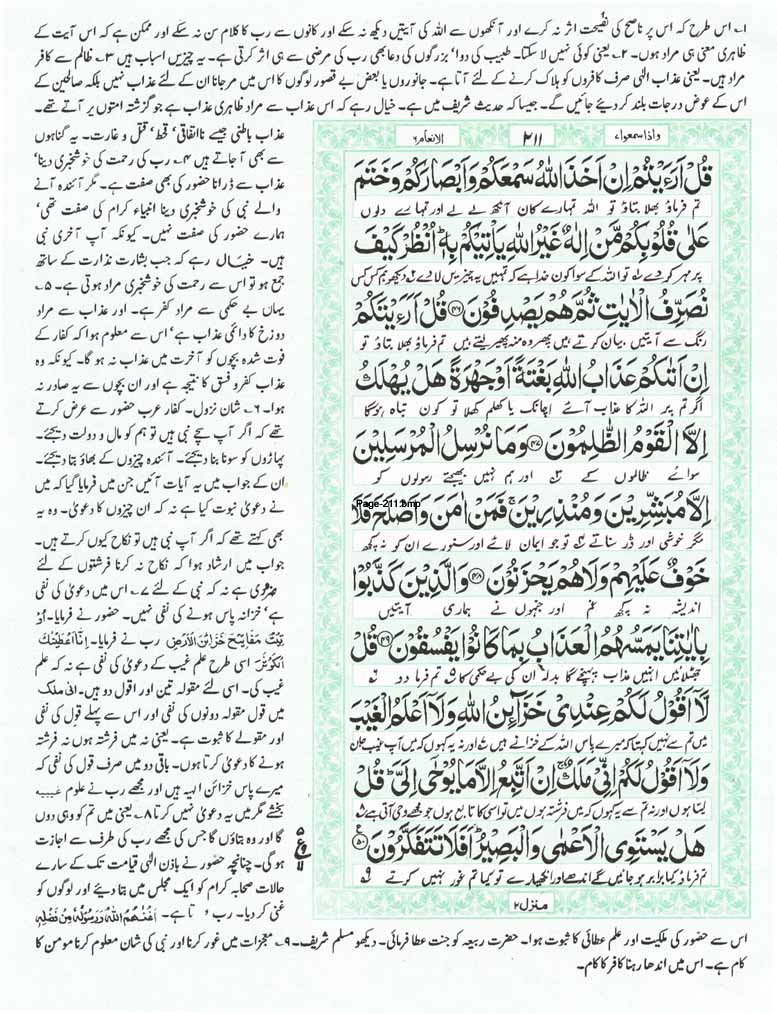 ۱۔ اس طرح کہ اس پر ناصح کی نصیحت اثر نہ کرے اور آنکھوں سے اللہ کی آیتیں دیکھ نہ سکے اور کانوں سے رب کا کلام سن نہ سکے اور ممکن ہے کہ اس آیت کے
ظاہری معنی ہی مراد ہوں۔ ۲۔ یعنی کوئی نہیں لا سکتا۔ طبیب کی دوا' بزرگوں کی دعا بھی رب کی مرضی سے ہی اثر کرتی ہے۔ یہ چیزیں اسباب ہیں ۳۔ ظالم سے کافر
مراد ہیں۔ یعنی عذاب الٰہی صرف کافروں کو ہلاک کرنے کے لئے آتا ہے۔ جانوروں یا بعض بے قصور لوگوں کا اس میں مر جانا ان کے لئے عذاب نہیں بلکہ صالحین کے
اس کے عوض درجات بلند کر دیئے جائیں گے۔ جیسا کہ حدیث شریف میں ہے۔ خیال رہے کہ اس عذاب سے مراد ظاہری عذاب ہے جو گزشتہ امتوں پر آتے تھے۔
واذا سمعوا۷
۲۱۱
الانعام۶
قُلْ اَرَءَيْتُمْ اِنْ اَخَذَ اللّٰهُ سَمْعَكُمْ وَاَبْصَارَكُمْ وَخَتَمَ
تم فرماؤ بھلا بتاؤ تو اگر اللہ تمہارے کان آنکھ لے لے اور تمہارے دلوں
عَلٰى قُلُوْبِكُمْ مَّنْ اِلٰهٌ غَيْرُ اللّٰهِ يَاْتِيْكُمْ بِهٖ اُنْظُرْ كَيْفَ
پر مہر کر دے تو اللہ کے سوا کون خدا ہے کہ تمہیں یہ چیزیں لا دے ۲ دیکھو ہم کس کس
نُصَرِّفُ الْاٰيٰتِ ثُمَّ هُمْ يَصْدِفُوْنَ ۝۴۶ قُلْ اَرَءَيْتَكُمْ
رنگ سے آیتیں بیان کرتے ہیں پھر وہ منہ پھیر لیتے ہیں تم فرماؤ بھلا بتاؤ تو
اِنْ اَتٰىكُمْ عَذَابُ اللّٰهِ بَغْتَةً اَوْ جَهْرَةً هَلْ يُهْلَكُ
اگر تم پر اللہ کا عذاب آئے اچانک یا کھلم کھلا تو کون تباہ ہوگا
اِلَّا الْقَوْمُ الظّٰلِمُوْنَ ۝۴۷ وَمَا نُرْسِلُ الْمُرْسَلِيْنَ
سوائے ظالموں کے ۳ اور ہم نہیں بھیجتے رسولوں کو
Page-211.bmp
اِلَّا مُبَشِّرِيْنَ وَمُنْذِرِيْنَ فَمَنْ اٰمَنَ وَاَصْلَحَ فَلَا
مگر خوشی اور ڈر سناتے ۴ تو جو ایمان لائے اور سنورے ان کو نہ کچھ
خَوْفٌ عَلَيْهِمْ وَلَا هُمْ يَحْزَنُوْنَ ۝۴۸ وَالَّذِيْنَ كَذَّبُوْا
اندیشہ نہ کچھ غم اور جنہوں نے ہماری آیتیں
بِاٰيٰتِنَا يَمَسُّهُمُ الْعَذَابُ بِمَا كَانُوْا يَفْسُقُوْنَ ۝۴۹ قُلْ
جھٹلائیں انہیں عذاب پہنچے گا بدلہ ان کی بے حکمی کا ۵ تم فرما دو
لَّآ اَقُوْلُ لَكُمْ عِنْدِيْ خَزَآىِٕنُ اللّٰهِ وَلَآ اَعْلَمُ الْغَيْبَ
میں تم سے نہیں کہتا کہ میرے پاس اللہ کے خزانے ہیں اور نہ یہ کہوں کہ میں آپ غیب جان
وَلَآ اَقُوْلُ لَكُمْ اِنِّيْ مَلَكٌ اِنْ اَتَّبِعُ اِلَّا مَا يُوْحٰٓى اِلَيَّ قُلْ
لیتا ہوں اور نہ تم سے یہ کہوں کہ میں فرشتہ ہوں میں تو اسی کا تابع ہوں جو مجھے وحی آتی ہے
هَلْ يَسْتَوِي الْاَعْمٰى وَالْبَصِيْرُ اَفَلَا تَتَفَكَّرُوْنَ ۝۵۰
تم فرماؤ کیا برابر ہو جائیں گے اندھے اور انکھیارے تو کیا تم غور نہیں کرتے ۹
منزل۲
عذاب باطنی جیسے نااتفاقی' قحط' قتل و غارت۔ یہ گناہوں
سے بھی آ جاتے ہیں ۴۔ رب کی رحمت کی خوشخبری دینا'
عذاب سے ڈرانا حضور کی بھی صفت ہے۔ مگر آئندہ آنے
والے نبی کی خوشخبری دینا انبیاء کرام کی صفت تھی'
ہمارے حضور کی صفت نہیں۔ کیونکہ آپ آخری نبی
ہیں۔ خیال رہے کہ جب بشارت نذارت کے ساتھ
جمع ہو تو اس سے رحمت کی خوشخبری مراد ہوتی ہے۔ ۵۔
یہاں بے حکمی سے مراد کفر ہے۔ اور عذاب سے مراد
دوزخ کا دائمی عذاب ہے' اس سے معلوم ہوا کہ کفار کے
فوت شدہ بچوں کو آخرت میں عذاب نہ ہو گا۔ کیونکہ وہ
عذاب کفر و فسق کا نتیجہ ہے اور ان بچوں سے یہ صادر نہ
ہوا۔ ۶۔ شان نزول۔ کفار عرب حضور سے عرض کرتے
تھے کہ اگر آپ سچے نبی ہیں تو ہم کو مال و دولت دیجئے۔
پہاڑوں کو سونا بنا دیجئے۔ آئندہ چیزوں کے بھاؤ بتا دیجئے۔
ان کے جواب میں یہ آیات آئیں جن میں فرمایا گیا کہ میں
نے دعویٰ نبوت کیا ہے نہ کہ ان چیزوں کا دعویٰ۔ وہ یہ
بھی کہتے تھے کہ اگر آپ نبی ہیں تو نکاح کیوں کرتے ہیں۔
جواب میں ارشاد ہوا کہ نکاح نہ کرنا فرشتوں کے لئے
ضروری ہے نہ کہ نبی کے لئے ۷۔ اس میں دعویٰ کی نفی
ہے' خزانہ پاس ہونے کی نفی نہیں۔ حضور نے فرمایا۔ اُوْ
تِيْتُ مَفَاتِيْحَ خَزَائِنِ الْاَرْضِ رب نے فرمایا۔ اِنَّا اَعْطَيْنٰكَ
الْكَوْثَرَ اسی طرح علم غیب کے دعویٰ کی نفی ہے نہ کہ علم
غیب کی۔ اسی لئے مقولہ تین اور اقول دو ہیں۔ انی ملک
میں قول مقولہ دونوں کی نفی اور اس سے پہلے قول کی نفی
اور مقولے کا ثبوت ہے۔ یعنی نہ میں فرشتہ ہوں نہ فرشتہ
ہونے کا دعویٰ کرتا ہوں۔ باقی دو میں صرف قول کی نفی کہ
میرے پاس خزائن الہیہ ہیں اور مجھے رب نے علوم غیبیہ
بخشے مگر میں یہ دعویٰ نہیں کرتا ۸۔ یعنی میں تم کو وہی دوں
گا اور وہ بتاؤں گا جس کی مجھے رب کی طرف سے اجازت
ہو گی۔ چنانچہ حضور نے باذن الٰہی قیامت تک کے سارے
حالات صحابہ کرام کو ایک مجلس میں بتا دیئے اور لوگوں کو
غنی کر دیا۔ رب تا ہے۔ اَغْنٰهُمُ اللّٰهُ وَرَسُوْلُهٗ مِنْ فَضْلِهٖ
اس سے حضور کی ملکیت اور علم عطائی کا ثبوت ہوا۔ حضرت ربیعہ کو جنت عطا فرمائی۔ دیکھو مسلم شریف۔ ۹۔ معجزات میں غور کرنا اور نبی کی شان معلوم کرنا مومن کا
کام ہے۔ اس میں اندھا رہنا کافر کا کام۔